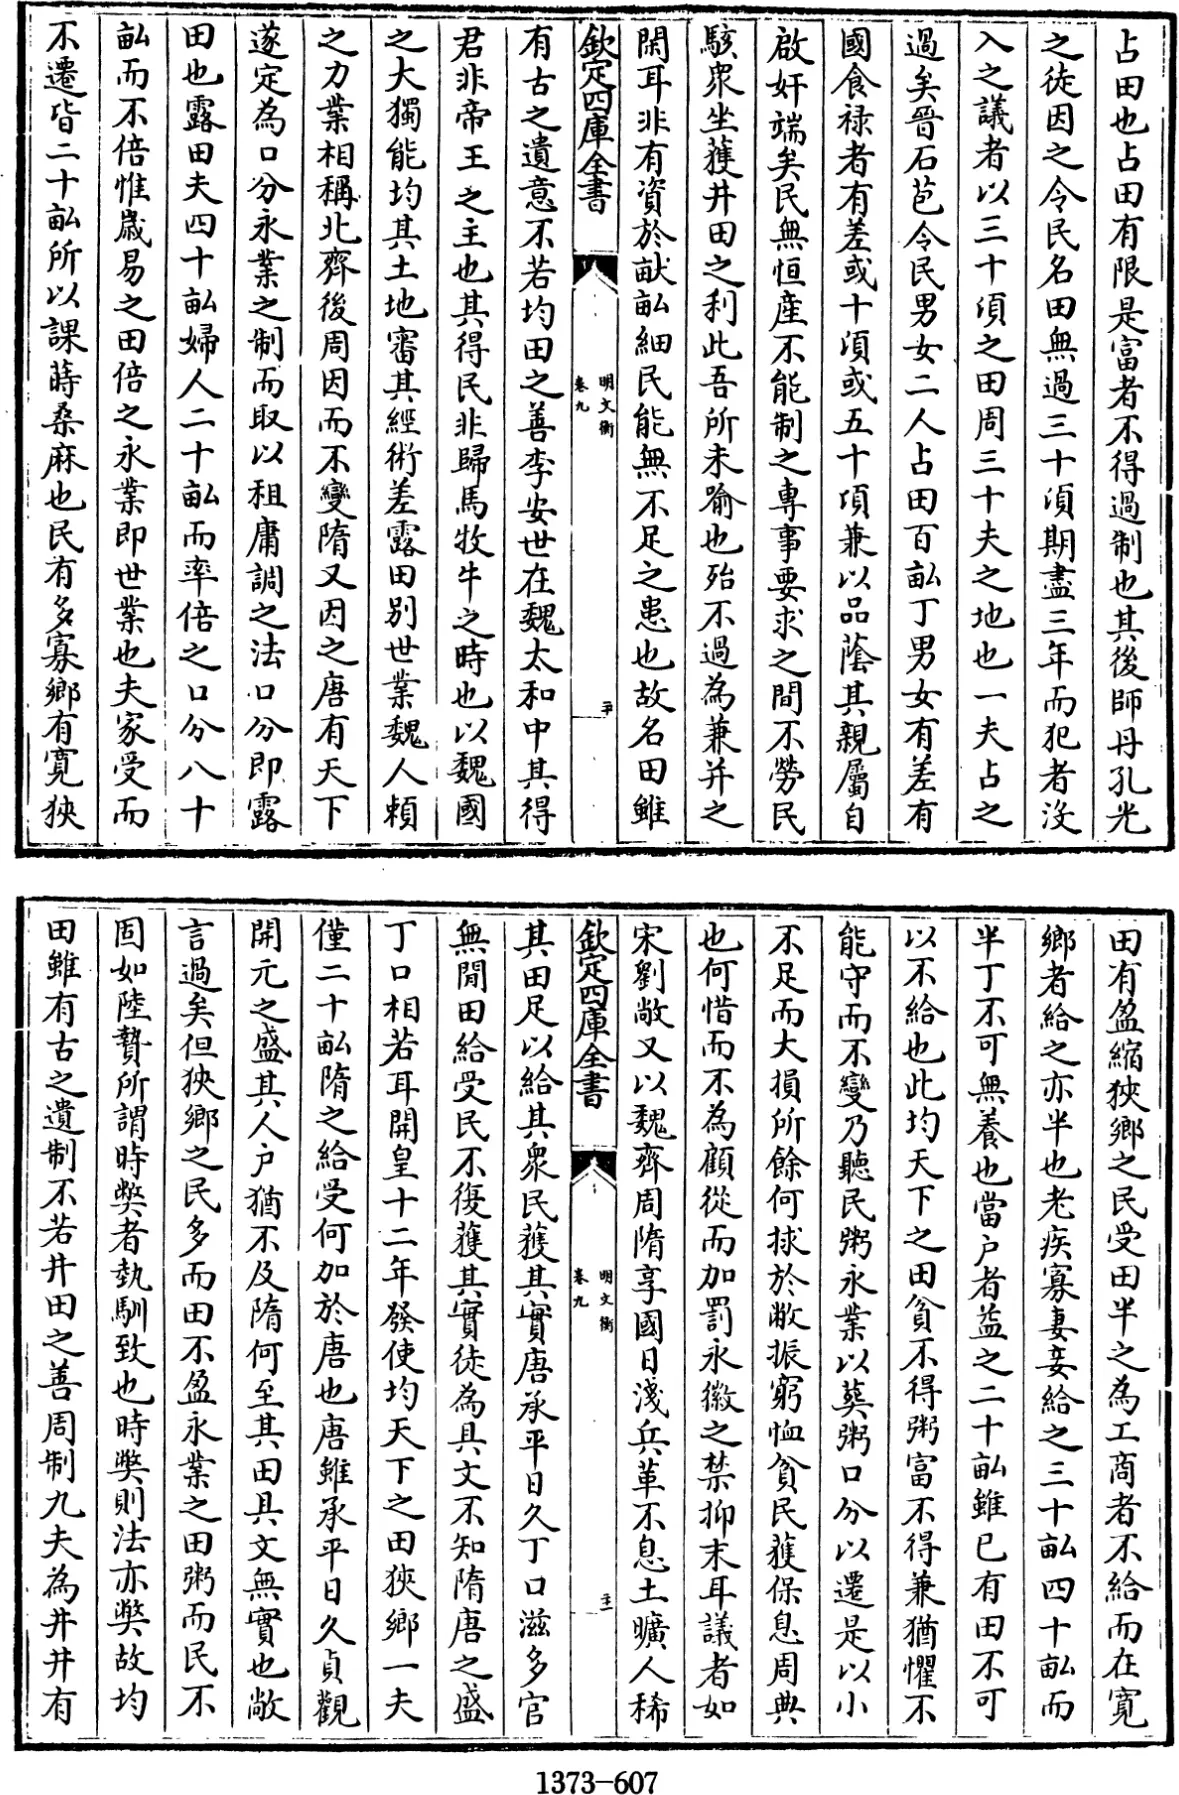 占田也占田有限是富者不得過制也其後師丹孔光
之徒因之令民名田無過三十頃期盡三年而犯者沒
入之議者以三十頃之田周三十夫之地也一夫占之
過矣晉石苞令民男女二人占田百畝丁男女有差有
國食禄者有差或十頃或五十頃兼以品蔭其親屬自
啟奸端矣民無恒產不能制之專事要求之間不勞民
駭衆坐獲井田之利此吾所未喻也殆不過為兼并之
閑耳非有資於畎畝細民能無不足之患也故名田雖
欽定四庫全書
明文衡
卷九
二十
有古之遺意不若均田之善李安世在魏太和中其得
君非帝王之主也其得民非歸馬牧牛之時也以魏國
之大獨能均其土地審其經術差露田别世業魏人賴
之力業相稱北齊後周因而不變隋又因之唐有天下
遂定為口分永業之制而取以租庸調之法口分即露
田也露田夫四十畝婦人二十畝而率倍之口分八十
畝而不倍惟歲易之田倍之永業即世業也夫家受而
不遷皆二十畝所以課蒔桑麻也民有多寡鄉有寛狹
田有盈縮狹鄉之民受田半之為工商者不給而在寛
鄉者給之亦半也老疾寡妻妾給之三十畝四十畝而
半丁不可無養也當户者益之二十畝雖已有田不可
以不給也此均天下之田貧不得粥富不得兼猶懼不
能守而不變乃聽民粥永業以葬粥口分以遷是以小
不足而大損所餘何捄於敝振窮恤貧民獲保息周典
也何惜而不為顧從而加罰永徽之禁抑末耳議者如
宋劉敞又以魏齊周隋享國日淺兵革不息土曠人稀
欽定四庫全書
明文衡
卷九
二十一
其田足以給其衆民獲其實唐承平日久丁口滋多官
無閒田給受民不復獲其實徒為具文不知隋唐之盛
丁口相若耳開皇十二年發使均天下之田狹鄉一夫
僅二十畝隋之給受何加於唐也唐雖承平日久貞觀
開元之盛其人户猶不及隋何至其田具文無實也敞
言過矣但狹鄉之民多而田不盈永業之田粥而民不
固如陸贄所謂時獘者埶馴致也時獘則法亦獘故均
田雖有古之遺制不若井田之善周制九夫為井井有
1373-607